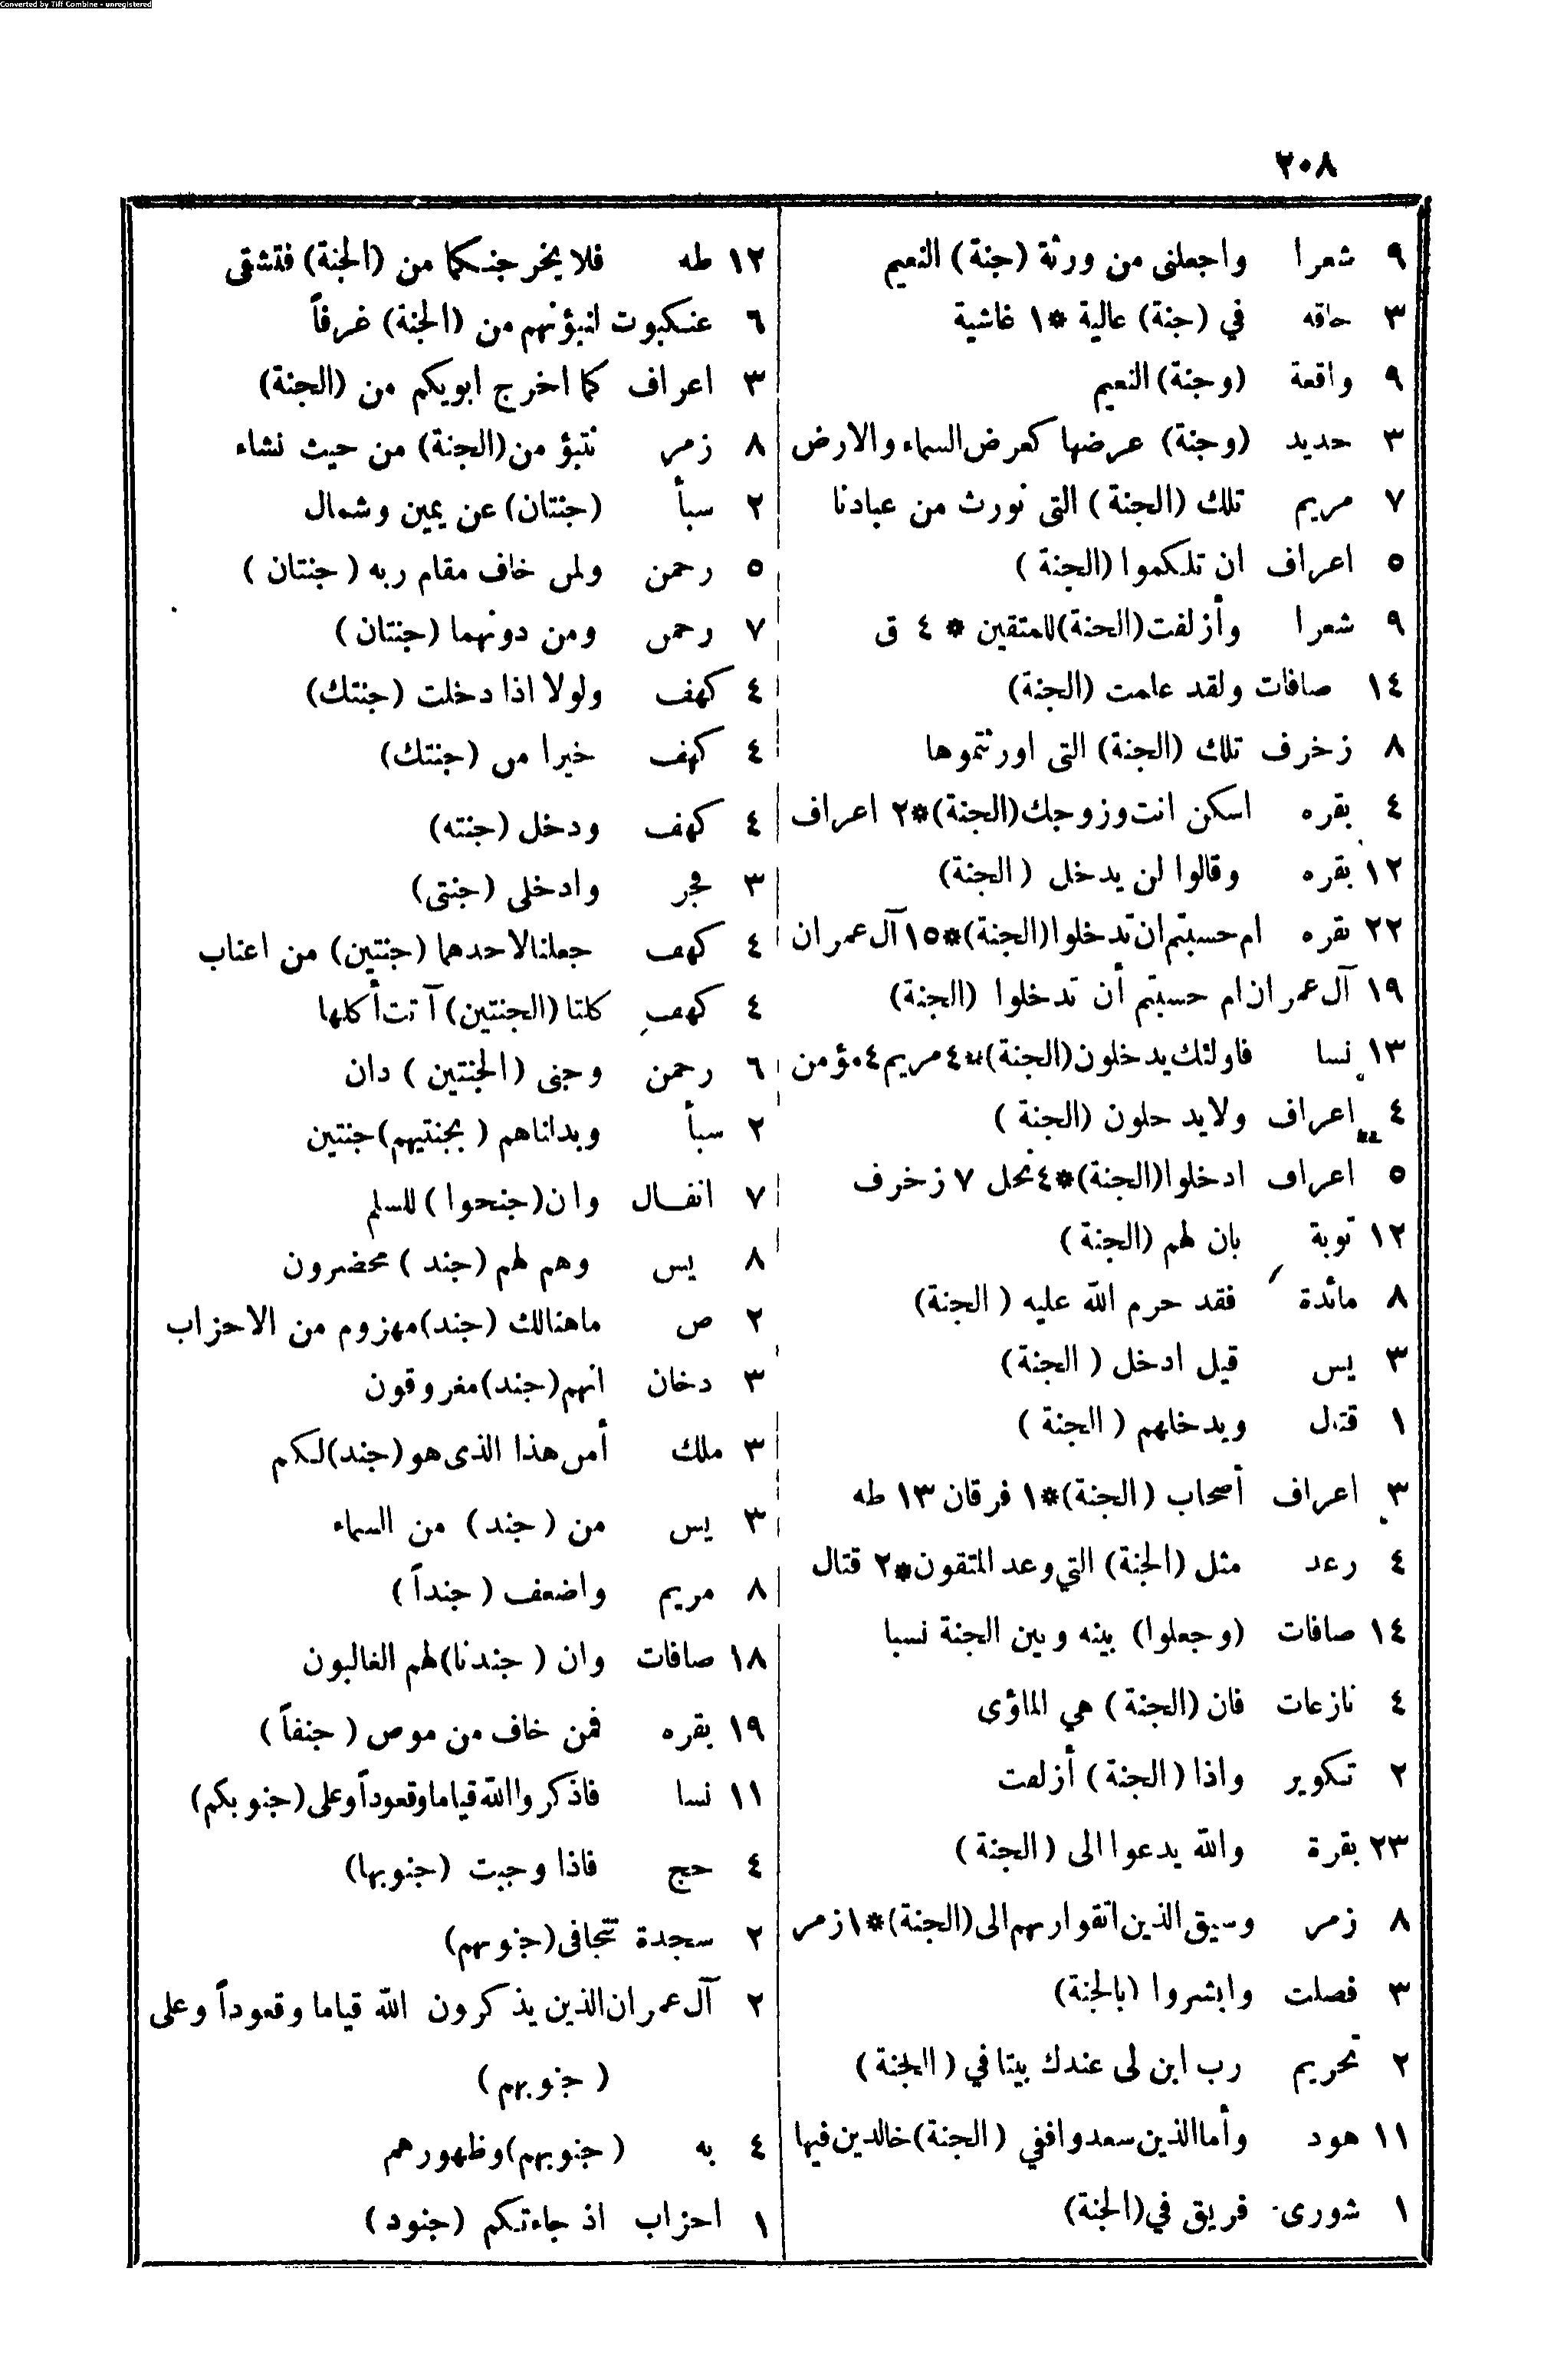 Converted by Tiff Combine - unregistered
٢٠٨
٩ شعرا واجعلنى من ورثة (جنة) النعيم
٣ حاقه في (جنة) عالية *١ غاشية
٩ واقعة (وجنة) النعيم
٣ حديد (وجنة) عرضها كعرض السماء والارض
٧ مريم تلك (الجنة) التى نورث من عبادنا
٥ اعراف ان تلكموا (الجنة)
٩ شعرا وأزلفت (الجنة) للمتقين * ٤ ق
١٤ صافات ولقد علمت (الجنة)
٨ زخرف تلك (الجنة) التى اورثتموها
٤ بقره اسكن انت وزوجك (الجنة)*٢ اعراف
١٢ بقره وقالوا لن يدخل (الجنة)
٢٢ بقره ام حسبتم ان تدخلوا (الجنة)*١٥ آل عمران
١٩ آل عمران ام حسبتم أن تدخلوا (الجنة)
١٣ نسا فاولئك يدخلون (الجنة)*٤ مريم ٤ مؤمن
٤ اعراف ولايدخلون (الجنة)
٥ اعراف ادخلوا (الجنة)*٤ نحل ٧ زخرف
١٢ توبة بان لهم (الجنة)
٨ مائدة فقد حرم الله عليه (الجنة)
٣ يس قيل ادخل (الجنة)
١ قتال ويدخلهم (الجنة)
٣ اعراف أصحاب (الجنة)*١ فرقان ١٣ طه
٤ رعد مثل (الجنة) التي وعد المتقون*٢ قتال
١٤ صافات (وجعلوا) بينه وبين الجنة نسبا
٤ نازعات فان (الجنة) هي الماؤى
٢ تكوير واذا (الجنة) أزلفت
٢٣ بقرة والله يدعوا الى (الجنة)
٨ زمر وسيق الذين اتقوا ربهم الى (الجنة)*١ زمر
٣ فصلت وابشروا (بالجنة)
٢ تحريم رب ابن لى عندك بيتا في (الجنة)
١١ هود وأما الذين سعدوا ففي (الجنة) خالدين فيها
١ شورى فريق في (الجنة)
١٢ طه فلا يخرجنكما من (الجنة) فتشقى
٦ عنكبوت لنبؤنهم من (الجنة) غرفاً
٣ اعراف كما اخرج ابويكم من (الجنة)
٨ زمر نتبؤ من (الجنة) من حيث نشاء
٢ سبأ (جنتان) عن يمين وشمال
٥ رحمن ولمن خاف مقام ربه (جنتان)
٧ رحمن ومن دونهما (جنتان)
٤ كهف ولولا اذا دخلت (جنتك)
٤ كهف خيرا من (جنتك)
٤ كهف ودخل (جنته)
٣ فجر وادخلى (جنتى)
٤ كهف جعلنا لاحدهما (جنتين) من اعناب
٤ كهف كلتا (الجنتين) آتت أكلها
٦ رحمن وجنى (الجنتين) دان
٢ سبأ وبدلناهم (بجنتيهم) جنتين
٧ انفال وان (جنحوا) للسلم
٨ يس وهم لهم (جند) محضرون
٢ ص ماهنالك (جند) مهزوم من الاحزاب
٣ دخان انهم (جند) مغروقون
٣ ملك أمن هذا الذى هو (جند) لكم
٣ يس من (جند) من السماء
٨ مريم واضعف (جنداً)
١٨ صافات وان (جندنا) لهم الغالبون
١٩ بقره فمن خاف من موص (جنفاً)
١١ نسا فاذكروا الله قياما وقعوداً وعلى (جنوبكم)
٤ حج فاذا وجبت (جنوبها)
٢ سجدة تتجافى (جنوبهم)
٢ آل عمران الذين يذكرون الله قياما وقعوداً وعلى
(جنوبهم)
٤ به (جنوبهم) وظهورهم
١ احزاب اذ جاءتكم (جنود)